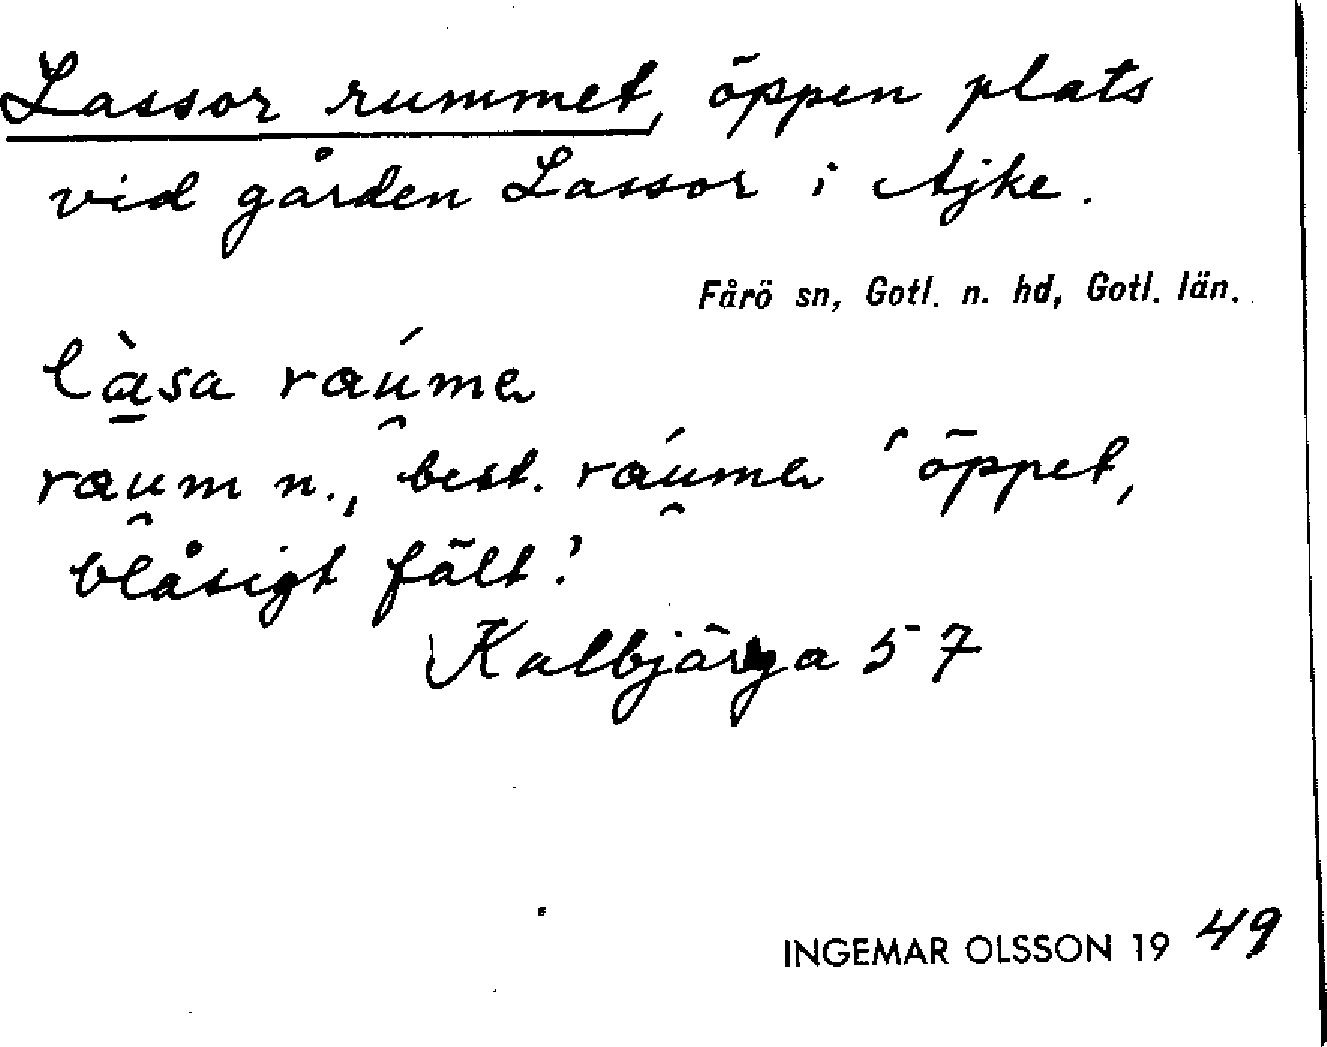 Lassor rummet, öppen plats
vid gården Lassor i Ajke.
Fårö sn, Gotl. n. hd, Gotl. län.
là̱sa ráu̯mɐ
rau̯m n., best. ráu̯mɐ 'öppet,
blåsigt fält'
Kalbjärga 57
INGEMAR OLSSON 19 49